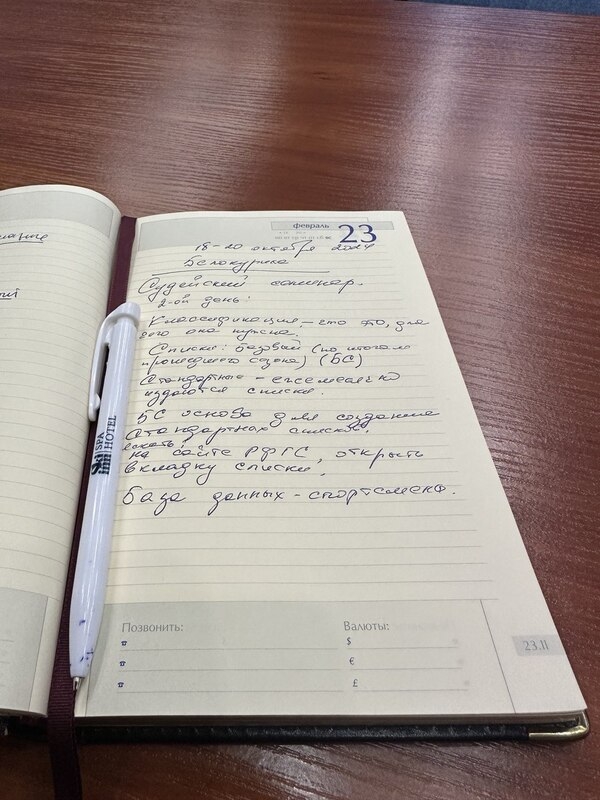 февраль 23
18-20 октября 2024
Белокуриха
Судейский семинар.
2-ой день:
Классификация, - что это, для
чего она нужна.
Списки: базовый (по итогам
прошедшего сезона) (БС)
Стандартные - ежемесячно
издаются списки.
БС основа для создания
Стандартных списков.
искать:
на сайте РФГС, открыть
вкладку списки.
База данных - спортсмена.
Позвонить:
Валюты:
$
€
£
23.II
SPA
HOTEL